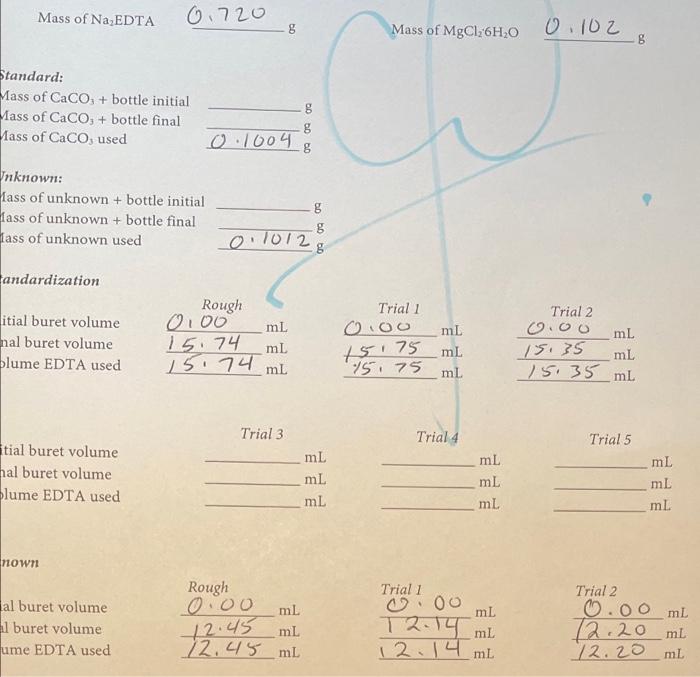 Mass of Na₂EDTA 0.720 g Mass of MgCl₂·6H₂O 0.102 g
Standard:
Mass of CaCO₃ + bottle initial g
Mass of CaCO₃ + bottle final g
Mass of CaCO₃ used 0.1004 g
Unknown:
Mass of unknown + bottle initial g
Mass of unknown + bottle final g
Mass of unknown used 0.1012 g
tandardization
Rough Trial 1 Trial 2
itial buret volume 0.00 mL 0.00 mL 0.00 mL
nal buret volume 15.74 mL 15.75 mL 15.35 mL
olume EDTA used 15.74 mL 15.75 mL 15.35 mL
Trial 3 Trial 4 Trial 5
itial buret volume mL mL mL
nal buret volume mL mL mL
olume EDTA used mL mL mL
nown
Rough Trial 1 Trial 2
ial buret volume 0.00 mL 0.00 mL 0.00 mL
al buret volume 12.45 mL 12.14 mL 12.20 mL
ume EDTA used 12.45 mL 12.14 mL 12.20 mL